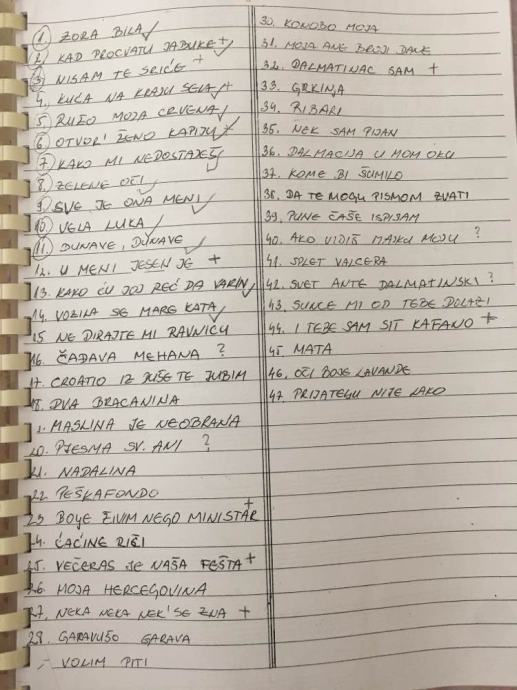 1. ZORA BILA ✓
2. KAD PROCVATU JABUKE +
3. NISAM TE SRIĆE +
4. KUĆA NA KRAJU SELA +
5. RUŽO MOJA CRVENA ✓
6. OTVORI ŽENO KAPIJU +
7. KAKO MI NEDOSTAJEŠ ✓
8. ZELENE OČI ✓
9. SVE JE ONA MENI ✓
10. VELA LUKA ✓
11. DUNAVE, DUNAVE ✓
12. U MENI JESEN JE +
13. KAKO ĆU JOJ REĆ DA VARIN ✓
14. VOZILA SE MARE KATA ✓
15 NE DIRAJTE MI RAVNICU
16. ČAĐAVA MEHANA ?
17. CROATIO IZ DUŠE TE LJUBIM
18. DVA BRACANINA
MASLINA JE NEOBRANA
20. PJESMA SV. ANI ?
21. NADALINA
22 PEŠKAFONDO
23 BOLJE ŽIVIM NEGO MINISTAR +
24. ĆAĆINE RIČI
25. VEČERAS JE NAŠA FEŠTA +
26 MOJA HERCEGOVINA
27. NEKA NEKA NEK' SE ZNA +
28. GARAVUŠO GARAVA
- VOLIM PITI
30. KONOBO MOJA
31. MOJA ANE BROJI DANE
32. DALMATINAC SAM +
33. GRKINJA
34. RIBARI
35. NEK SAM PIJAN
36. DALMACIJA U MOM OKU
37. KOME BI ŠUMILO
38. DA TE MOGU PISMOM ZVATI
39. PUNE ČAŠE ISPIJAM
40. AKO VIDIŠ MAJKU MOJU ?
41. SPLET VALCERA
42. SVET ANTE DALMATINSKI ?
43. SUNCE MI OD TEBE DOLAZI
44. I TEBE SAM SIT KAFANO +
45. MATA
46. OČI BOJE LAVANDE
47. PRIJATELJU NIJE LAKO